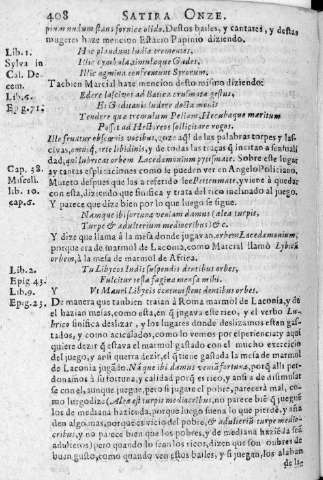 408 SATIRA ONZE.
pinmundum stans fornice olido. Destos bailes, y cantares, y destas
mugeres haze mencion Estacio Papinio diziendo.
Lib. 1. Hic plaudunt ludiæ trementes,
Sylva in Illic cymbala, tinnulaque Gades,
Cal. De Illic agmina confremunt Syrorum.
cem. Tãbien Marcial haze mencion desto mismo diziendo:
Lib. 6. Edere lascivos ad Bætica crusmata gestus,
Epig. 71. Et Gaditanis ludere docta modis
Tendere quæ tremulum Peliam, Hecubæque maritum
Possit ad Hectoreos sollicitare rogos.
Ille fruitur obscœnis vocibus, goza aquel de las palabras torpes y las-
civas, omniq; arte libidinis, y de todas las traças q̃ incitan a sensuali
dad, qui lubricat orbem Lacedæmonium pytismate. Sobre este lugar
Cap. 38. ay tantas esplicaciones como se pueden ver en Angelo Policiano,
Miscell. Mureto despues que los a referido lee Pytismate, y viene à quedar
lib. 10. con esta, diziendo que fisica y trata del rico inclinado al juego.
cap. 6. Y parece que dize bien por lo que luego se sigue.
Namque ibi fortunæ veniam damus (alea turpis,
Turpe & adulterium mediocribus) &c.
Y dize que llama à la mesa donde jugavan, orbem Lacedæmonium,
porque era de marmol de Laconia, como Marcial llamò Lybicũ
orbem, à la mesa de marmol de Africa.
Lib. 2. Tu Libycos Indis suspendis dentibus orbes,
Epig. 43. Fulcitur testa fagina mensa mihi.
Lib. 9. Y Ut Mauri Libycis centum stent dentibus orbes.
Epig. 23. De manera que tambien traian à Roma marmol de Laconia, y de
el hazian mesas, como esta, en q̃ jugava este rico, y el verbo Lu-
brico sinifica deslizar, y los lugares donde deslizamos estan gas-
tados, y como acicalados, como lo vemos por esperiencia: y aqui
quiere dezir q̃ estava el marmol gastado con el mucho exercicio
del juego, y assi querra dezir, el q̃ tiene gastada la mesa de marmol
de Laconia jugãdo. Nãque ibi damus veniã fortunæ, porq̃ alli per-
donamos à la fortuna, y calidad porq̃ es rico, y assi se a de disimular
se con el, aunque juegue, pero si jugara el pobre, pareciera mal, co-
mo luego dize (Alea est turpis mediocribus, no parece biẽ q̃ jueguen
los de mediana hazienda, porque luego suena lo que pierdẽ, y aña
den algo mas, porque es vicio del pobre, & adulteriũ turpe medio-
cribus, y no parece bien que los pobres, y de mediana haziẽda seã
adulteros) pero quando lo son los ricos, dizen que son onbres de
buen gusto, como quando ven estos bailes, y si juegan, los alaban
de li-